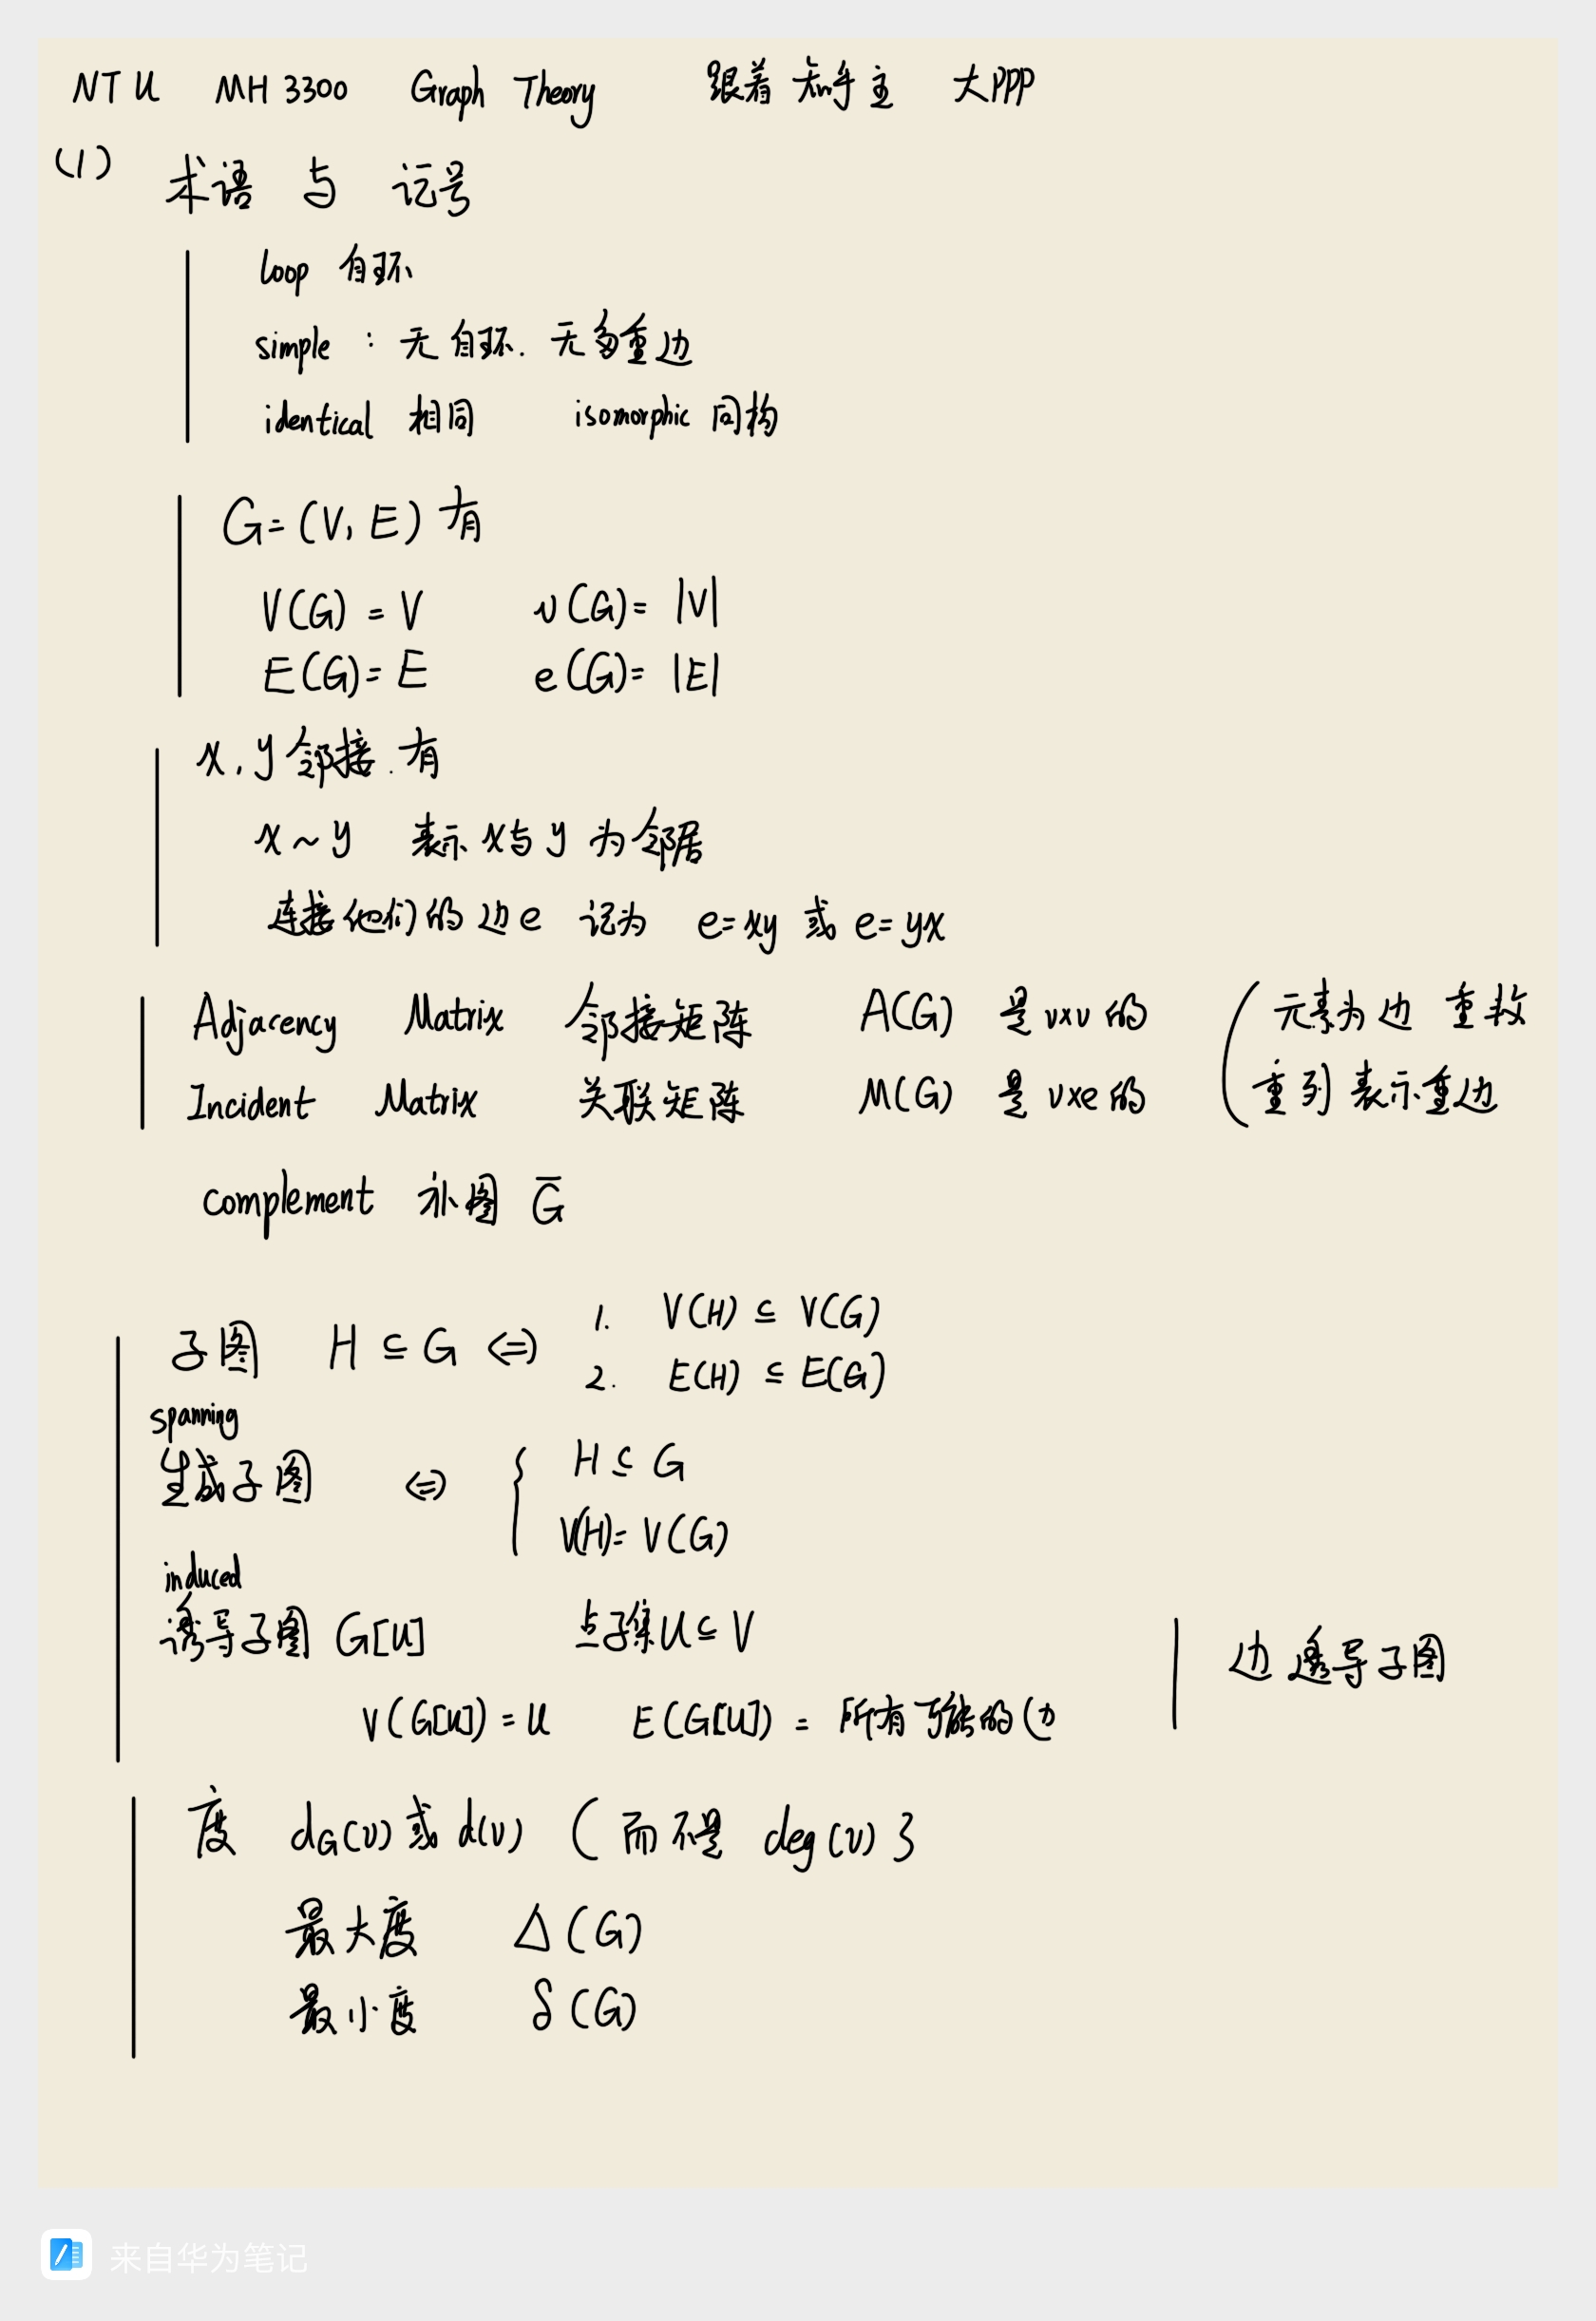 NTU MH3300 Graph Theory 跟着 知乎主 大PPP
(1) 术语 与 记号
loop 自环
simple : 无自环. 无多重边
identical 相同 isomorphic 同构
G=(V, E) 有
V(G) = V v(G)= |V|
E(G)= E e(G)= |E|
x, y 邻接. 有
x ~ y 表示 x与y 为邻居
连接他们的边e 记为 e=xy 或 e=yx
Adjacency Matrix 邻接矩阵 A(G) 是 v×v 的 ( 元素为边 重数
Incident Matrix 关联矩阵 M(G) 是 v×e 的 重列表示重边
complement 补图 G̅
子图 H ⊆ G ⇔ 1. V(H) ⊆ V(G)
2. E(H) ⊆ E(G)
spanning
生成子图 ⇔ { H ⊆ G
V(H)= V(G)
induced
诱导子图 G[U] 点子集U⊆V
边诱导子图
V(G[U]) = U E(G[U]) = 所有可能的边
度 dG(v) 或 d(v) ( 而不是 deg(v) }
最大度 Δ(G)
最小度 δ(G)
来自华为笔记